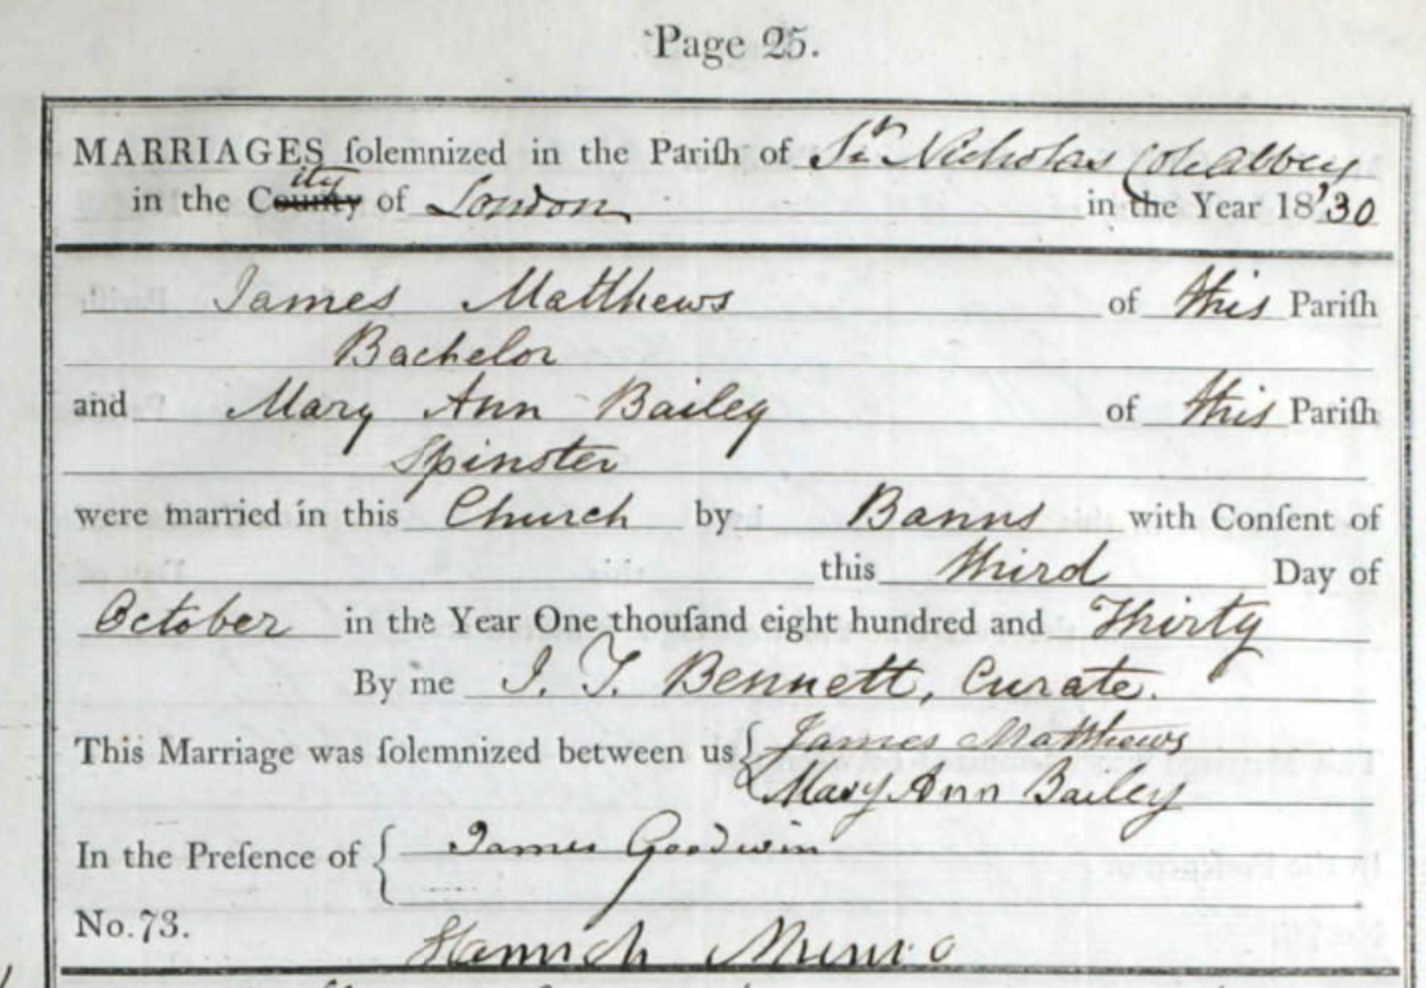 Page 25.
MARRIAGES ſolemnized in the Pariſh of St. Nicholas Cole Abbey
in the City of London in the Year 18'30
James Matthews of this Pariſh
Bachelor
and Mary Ann Bailey of this Pariſh
Spinster
were married in this Church by Banns with Conſent of
this third Day of
October in the Year One thouſand eight hundred and Thirty
By me J. T. Bennett, Curate.
This Marriage was ſolemnized between us { James Matthews
Mary Ann Bailey
In the Preſence of { James Goodwin
No. 73.
Hannah Munro